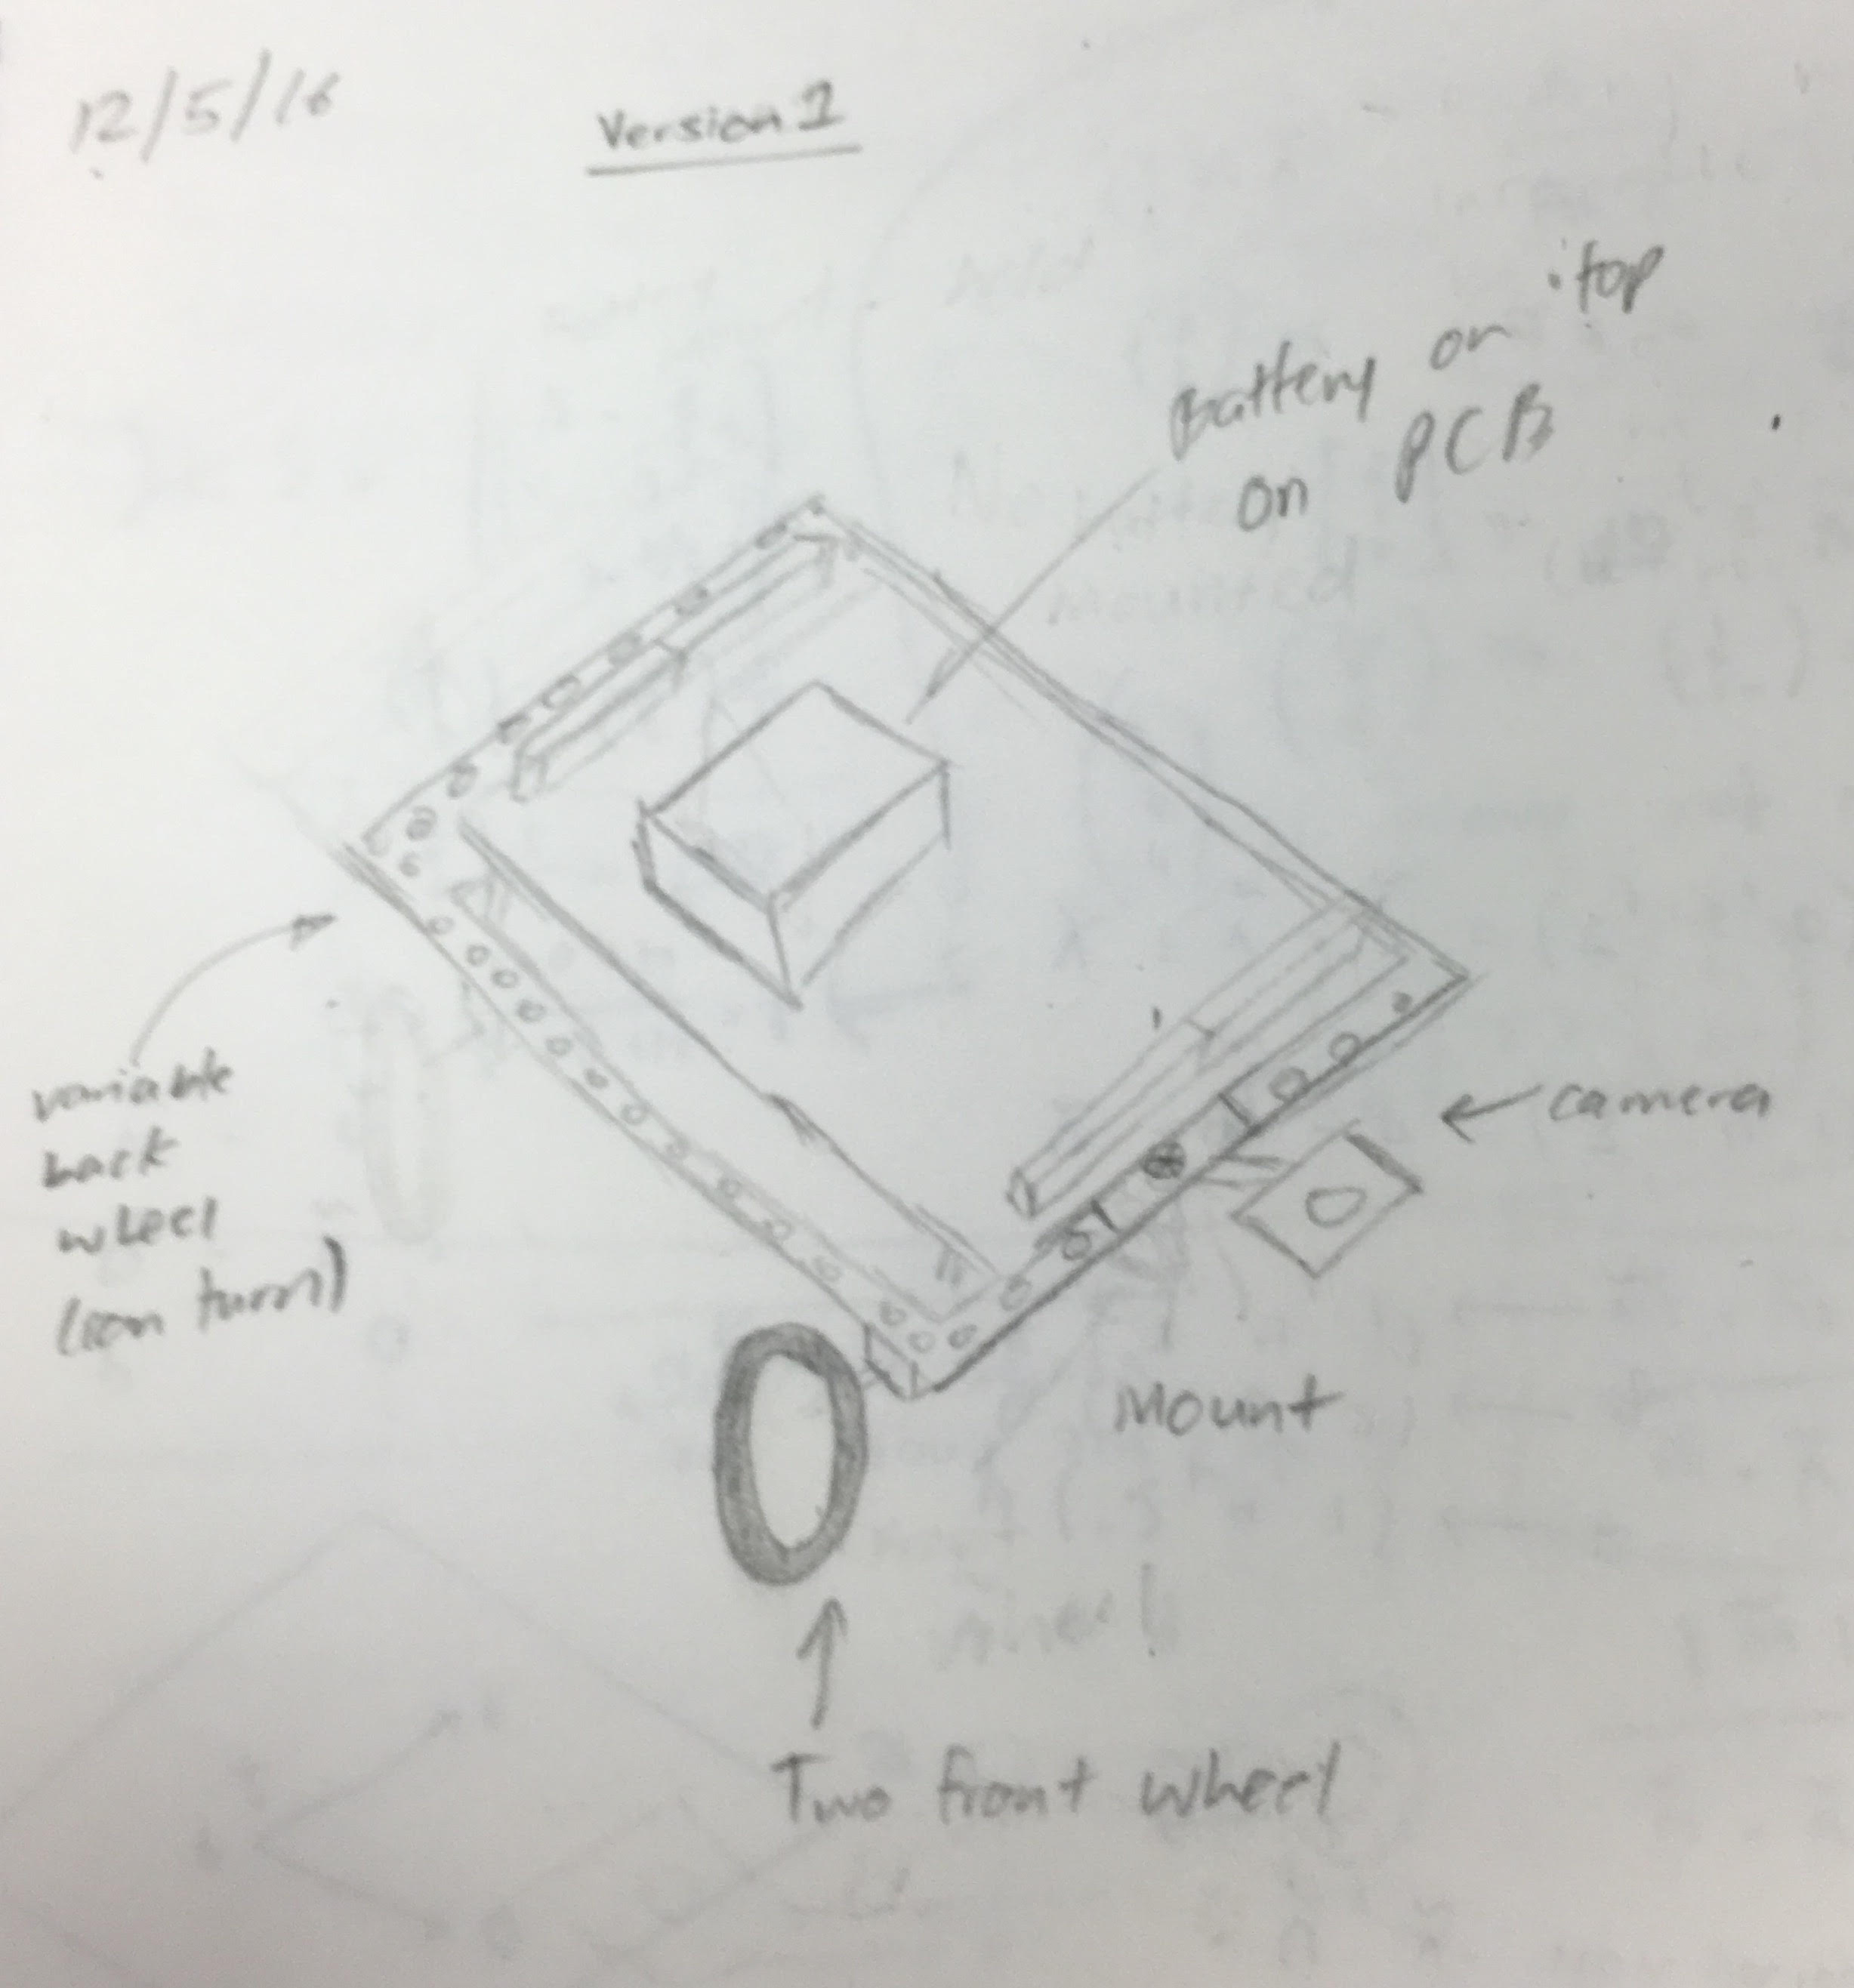 12/5/16
Version 1
Battery on top
on PCB
camera
variable
back
wheel
(can turn)
Mount
Two front wheel